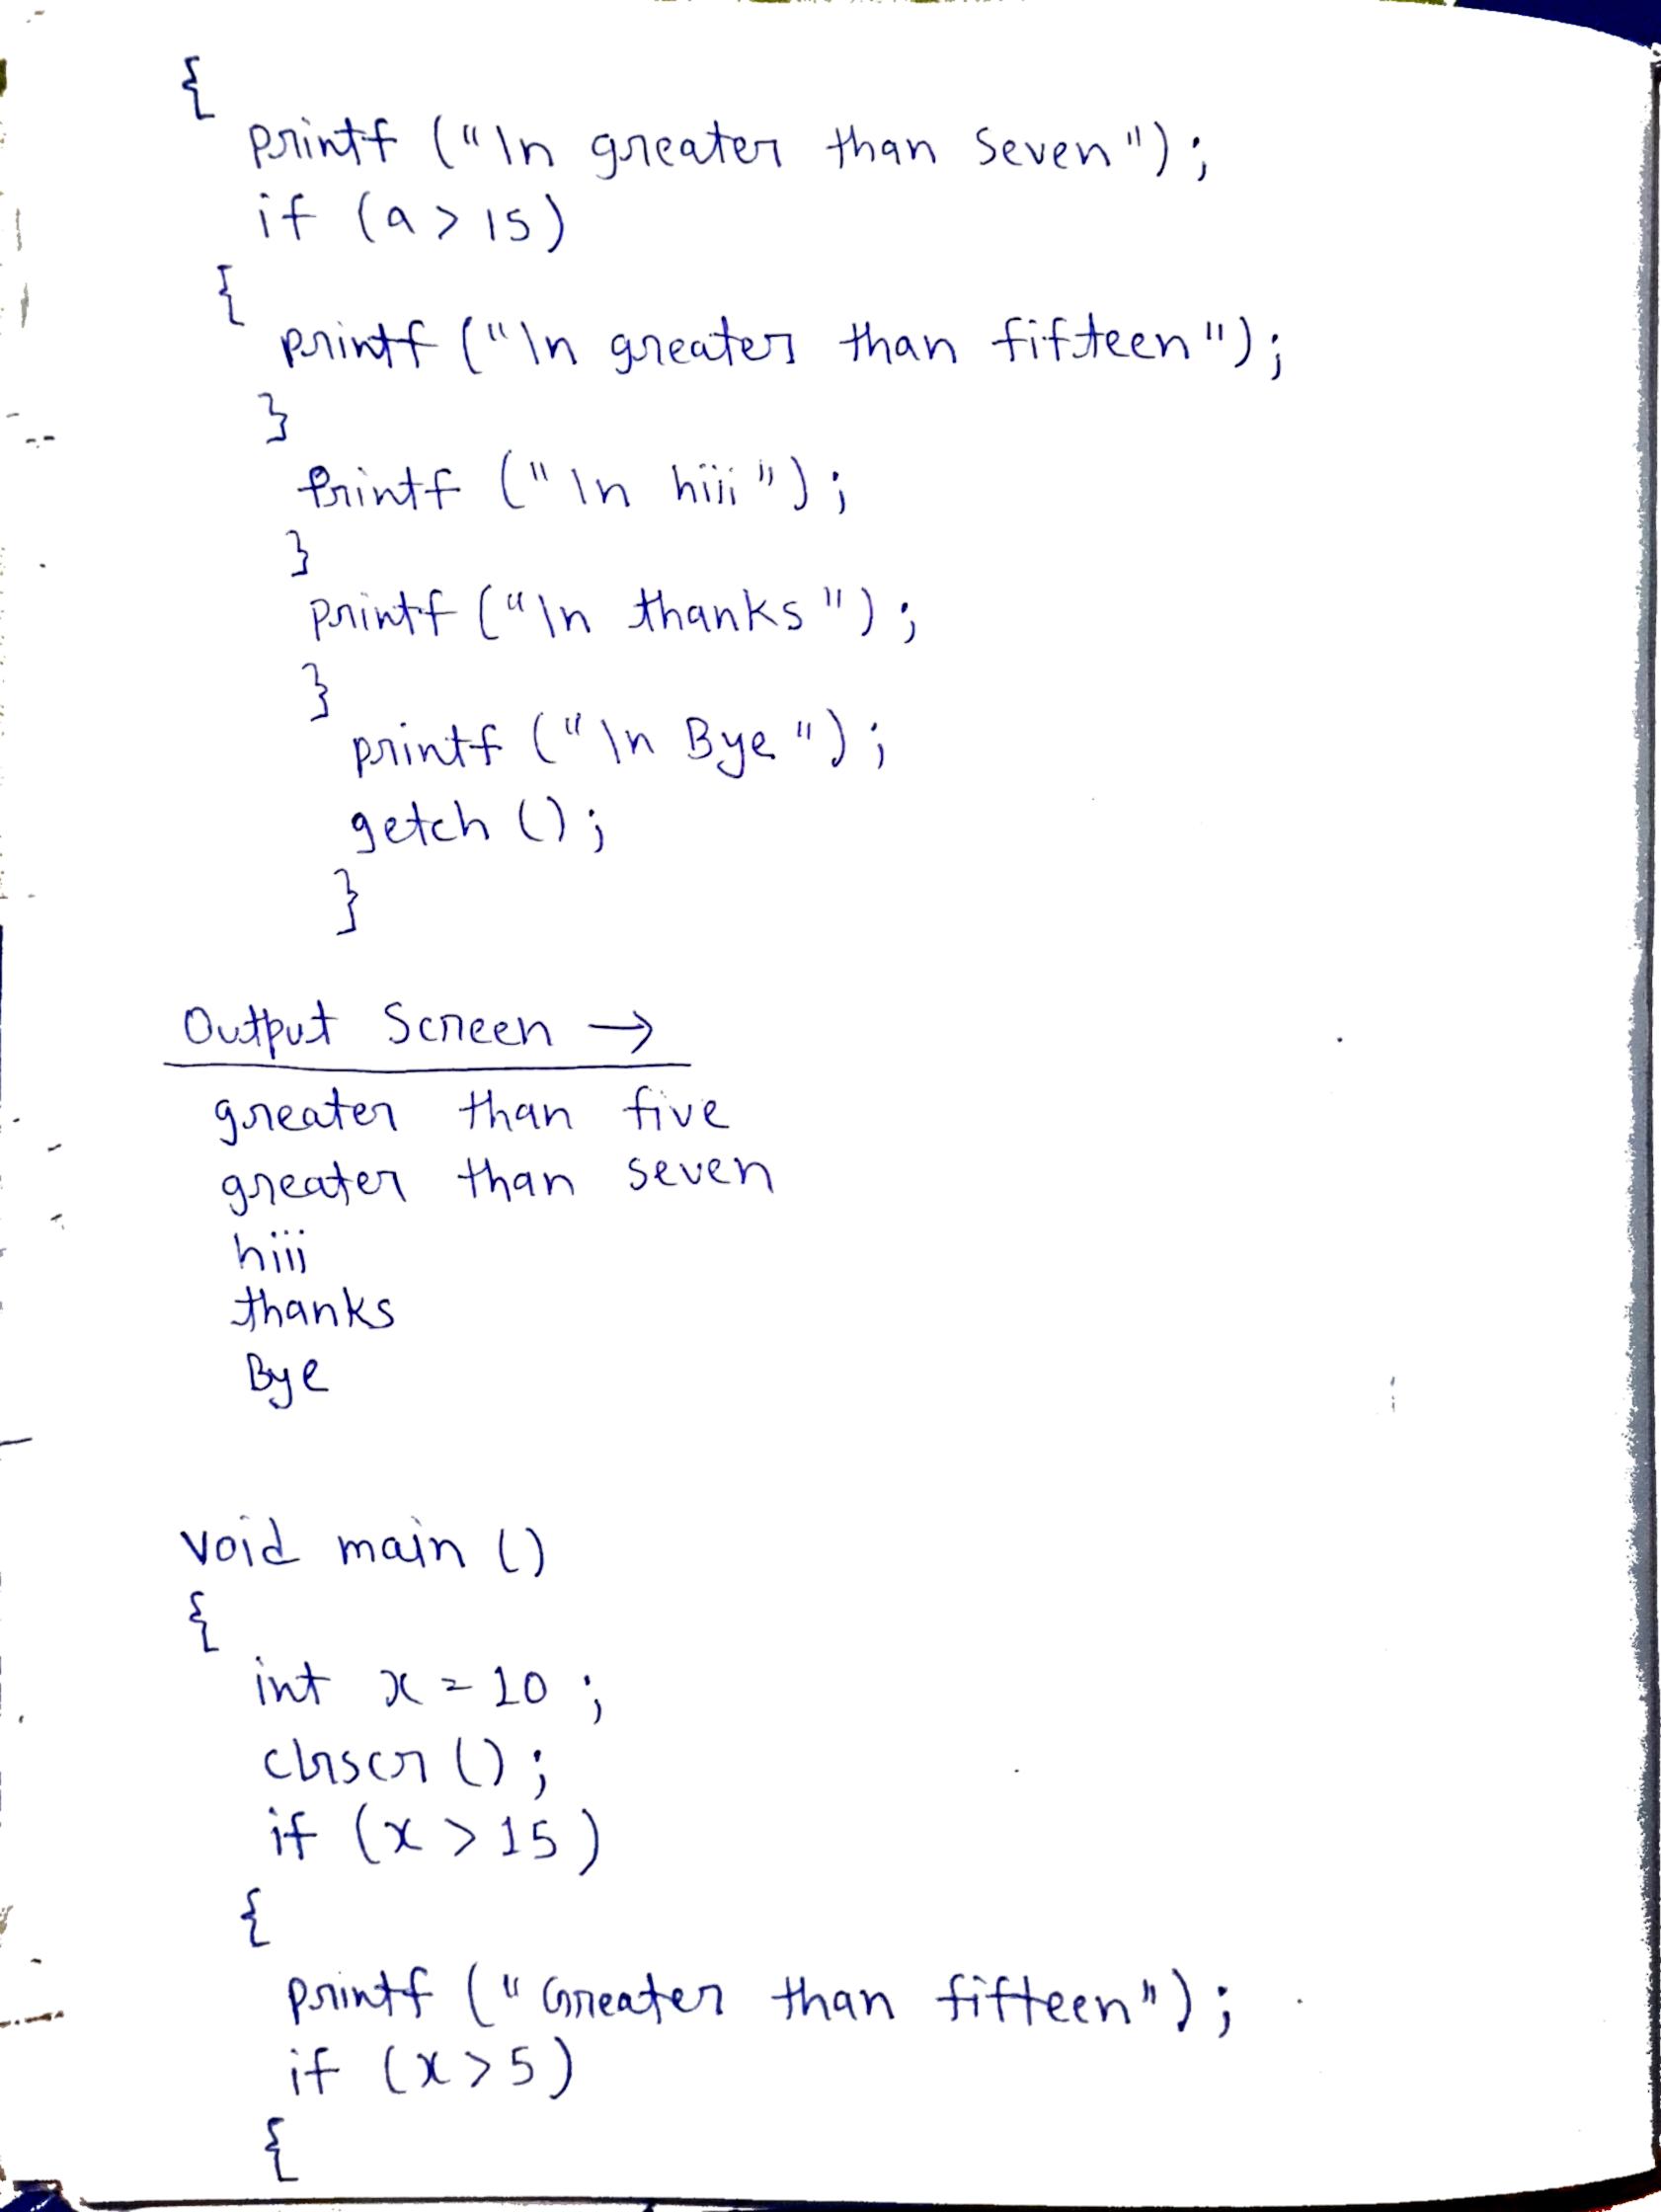 {
printf ("\n greater than seven");
if (a > 15)
{
printf ("\n greater than fifteen");
}
printf ("\n hiii");
}
printf ("\n thanks");
}
printf ("\n Bye");
getch ();
}
Output Screen →
greater than five
greater than seven
hiii
thanks
Bye
void main ()
{
int x = 10 ;
clrscr ();
if (x > 15)
{
printf ("Greater than fifteen");
if (x > 5)
{